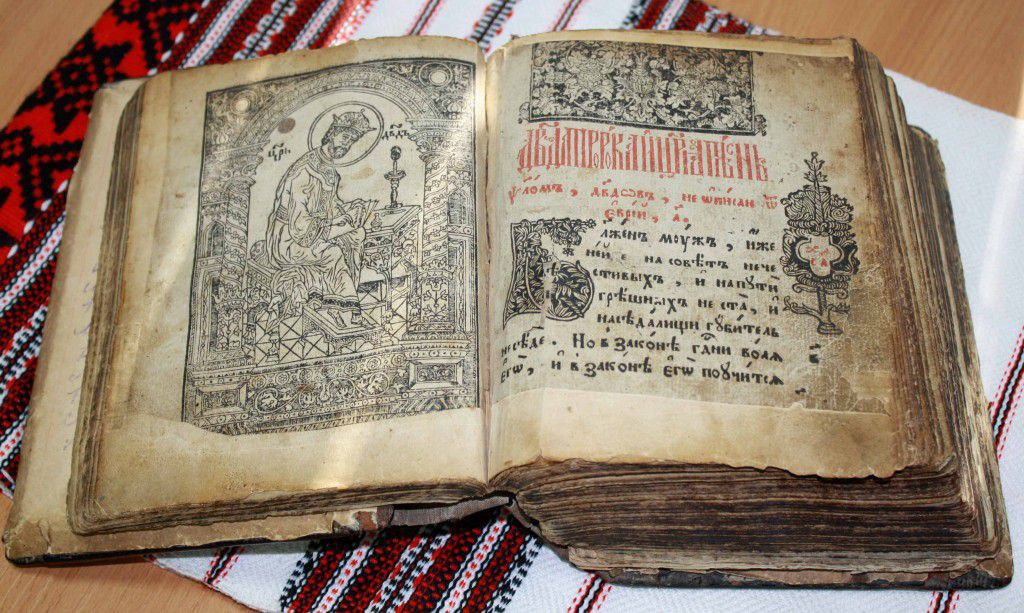 цр҃ь дв҃дъ
Дв҃да прⷪ҇рока и цр҃ѧ пѣснь
ѱ҃ломъ, дв҃довъ, не ѡписанъ ѿ
еврѣй, а҃.
Бл҃женъ моужъ, иже
не иде на совѣтъ нече
стивыхъ, и на пути
грѣшныхъ не ста, и
на сѣдалищи губитель
не сѣде. Но в законѣ гд҃ни волѧ
егѡ, и в законѣ егѡ поучитсѧ